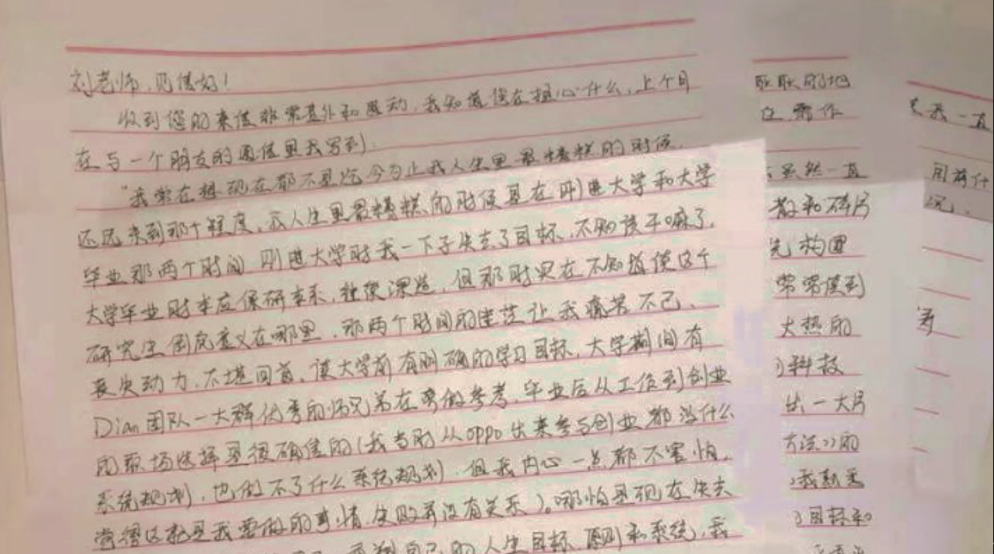 刘老师,见信好!
收到您的来信非常意外和感动,我知道您在担心什么,上个月
在与一个朋友的通信里我写到:
"我常在想现在都不是迄今为止我人生里最糟糕的时候,
还远未到那个程度,我人生里最糟糕的时候是在刚进大学和大学
毕业那两个时间,刚进大学时我一下子失去了目标,不知该干嘛了,
大学毕业时本应保研本系,继续深造,但那时实在不知道读这个
研究生到底意义在哪里,那两个时间的迷茫让我痛苦不已,
丧失动力,不堪回首,读大学前有明确的学习目标,大学期间有
Dian团队一大群优秀的师兄弟在旁做参考,毕业后从工作到创业
的职场选择是很确信的(我当时从oppo出来参与创业都没什么
系统规划,也做不了什么系统规划,但我内心一点都不害怕,
觉得这就是我要做的事情,失败并没有关系)。哪怕是现在失去
自己的人生目标,原则和系统,我
地
立 需作
虽然一直
散和碎片
先构困
常常
大热的
科技
出一大片
方法》的
我
目标和
我一直
用
况。